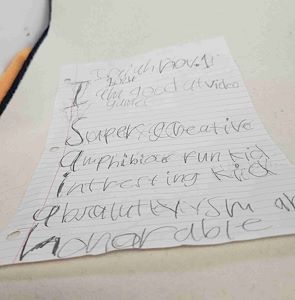 Isaiah nov. 1
I am best
good at video
games
Super creative
amphibias run kid
intresting kid
abralutlyysm a
honorable